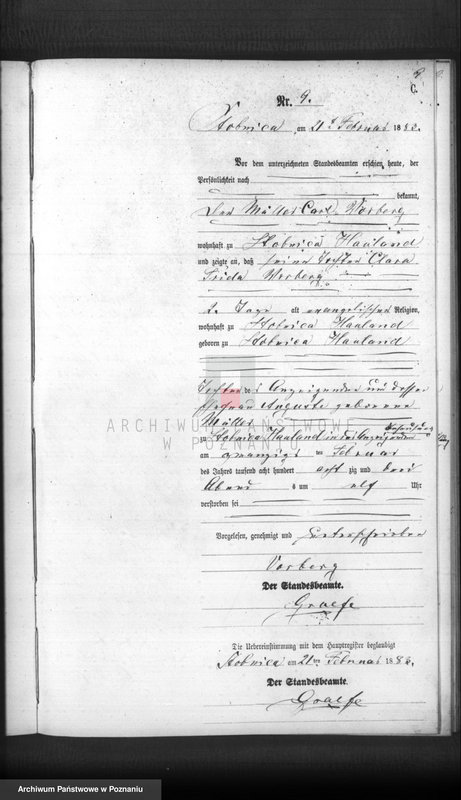 9
C.
Nr. 9.
Stobnica, am 21ten Februar 1883.
Vor dem unterzeichneten Standesbeamten erschien heute, der
Persönlichkeit nach
bekannt,
Der Müller Carl Vorberg
wohnhaft zu Stobnica Hauland
und zeigte an, daß seine Tochter Clara
Frida Vorberg
alt evangelischer Religion,
wohnhaft zu Stobnica Hauland
geboren zu Stobnica Hauland
Tochter des Anzeigenden und dessen
Ehefrau Auguste geborene
Müller
zu Stobnica Hauland in des Anzeigenden Behausung
am zwanzigs ten Februar
des Jahres tausend acht hundert acht zig und drei
Abend s um elf Uhr
verstorben sei
Vorgelesen, genehmigt und Unterschrieben
Vorberg
Der Standesbeamte.
Graefe
Die Uebereinstimmung mit dem Hauptregister beglaubigt
Stobnica am 21ten Februar 1883.
Der Standesbeamte.
Graefe
ARCHIWUM PAŃSTWOWE
W POZNANIU
Archiwum Państwowe w Poznaniu